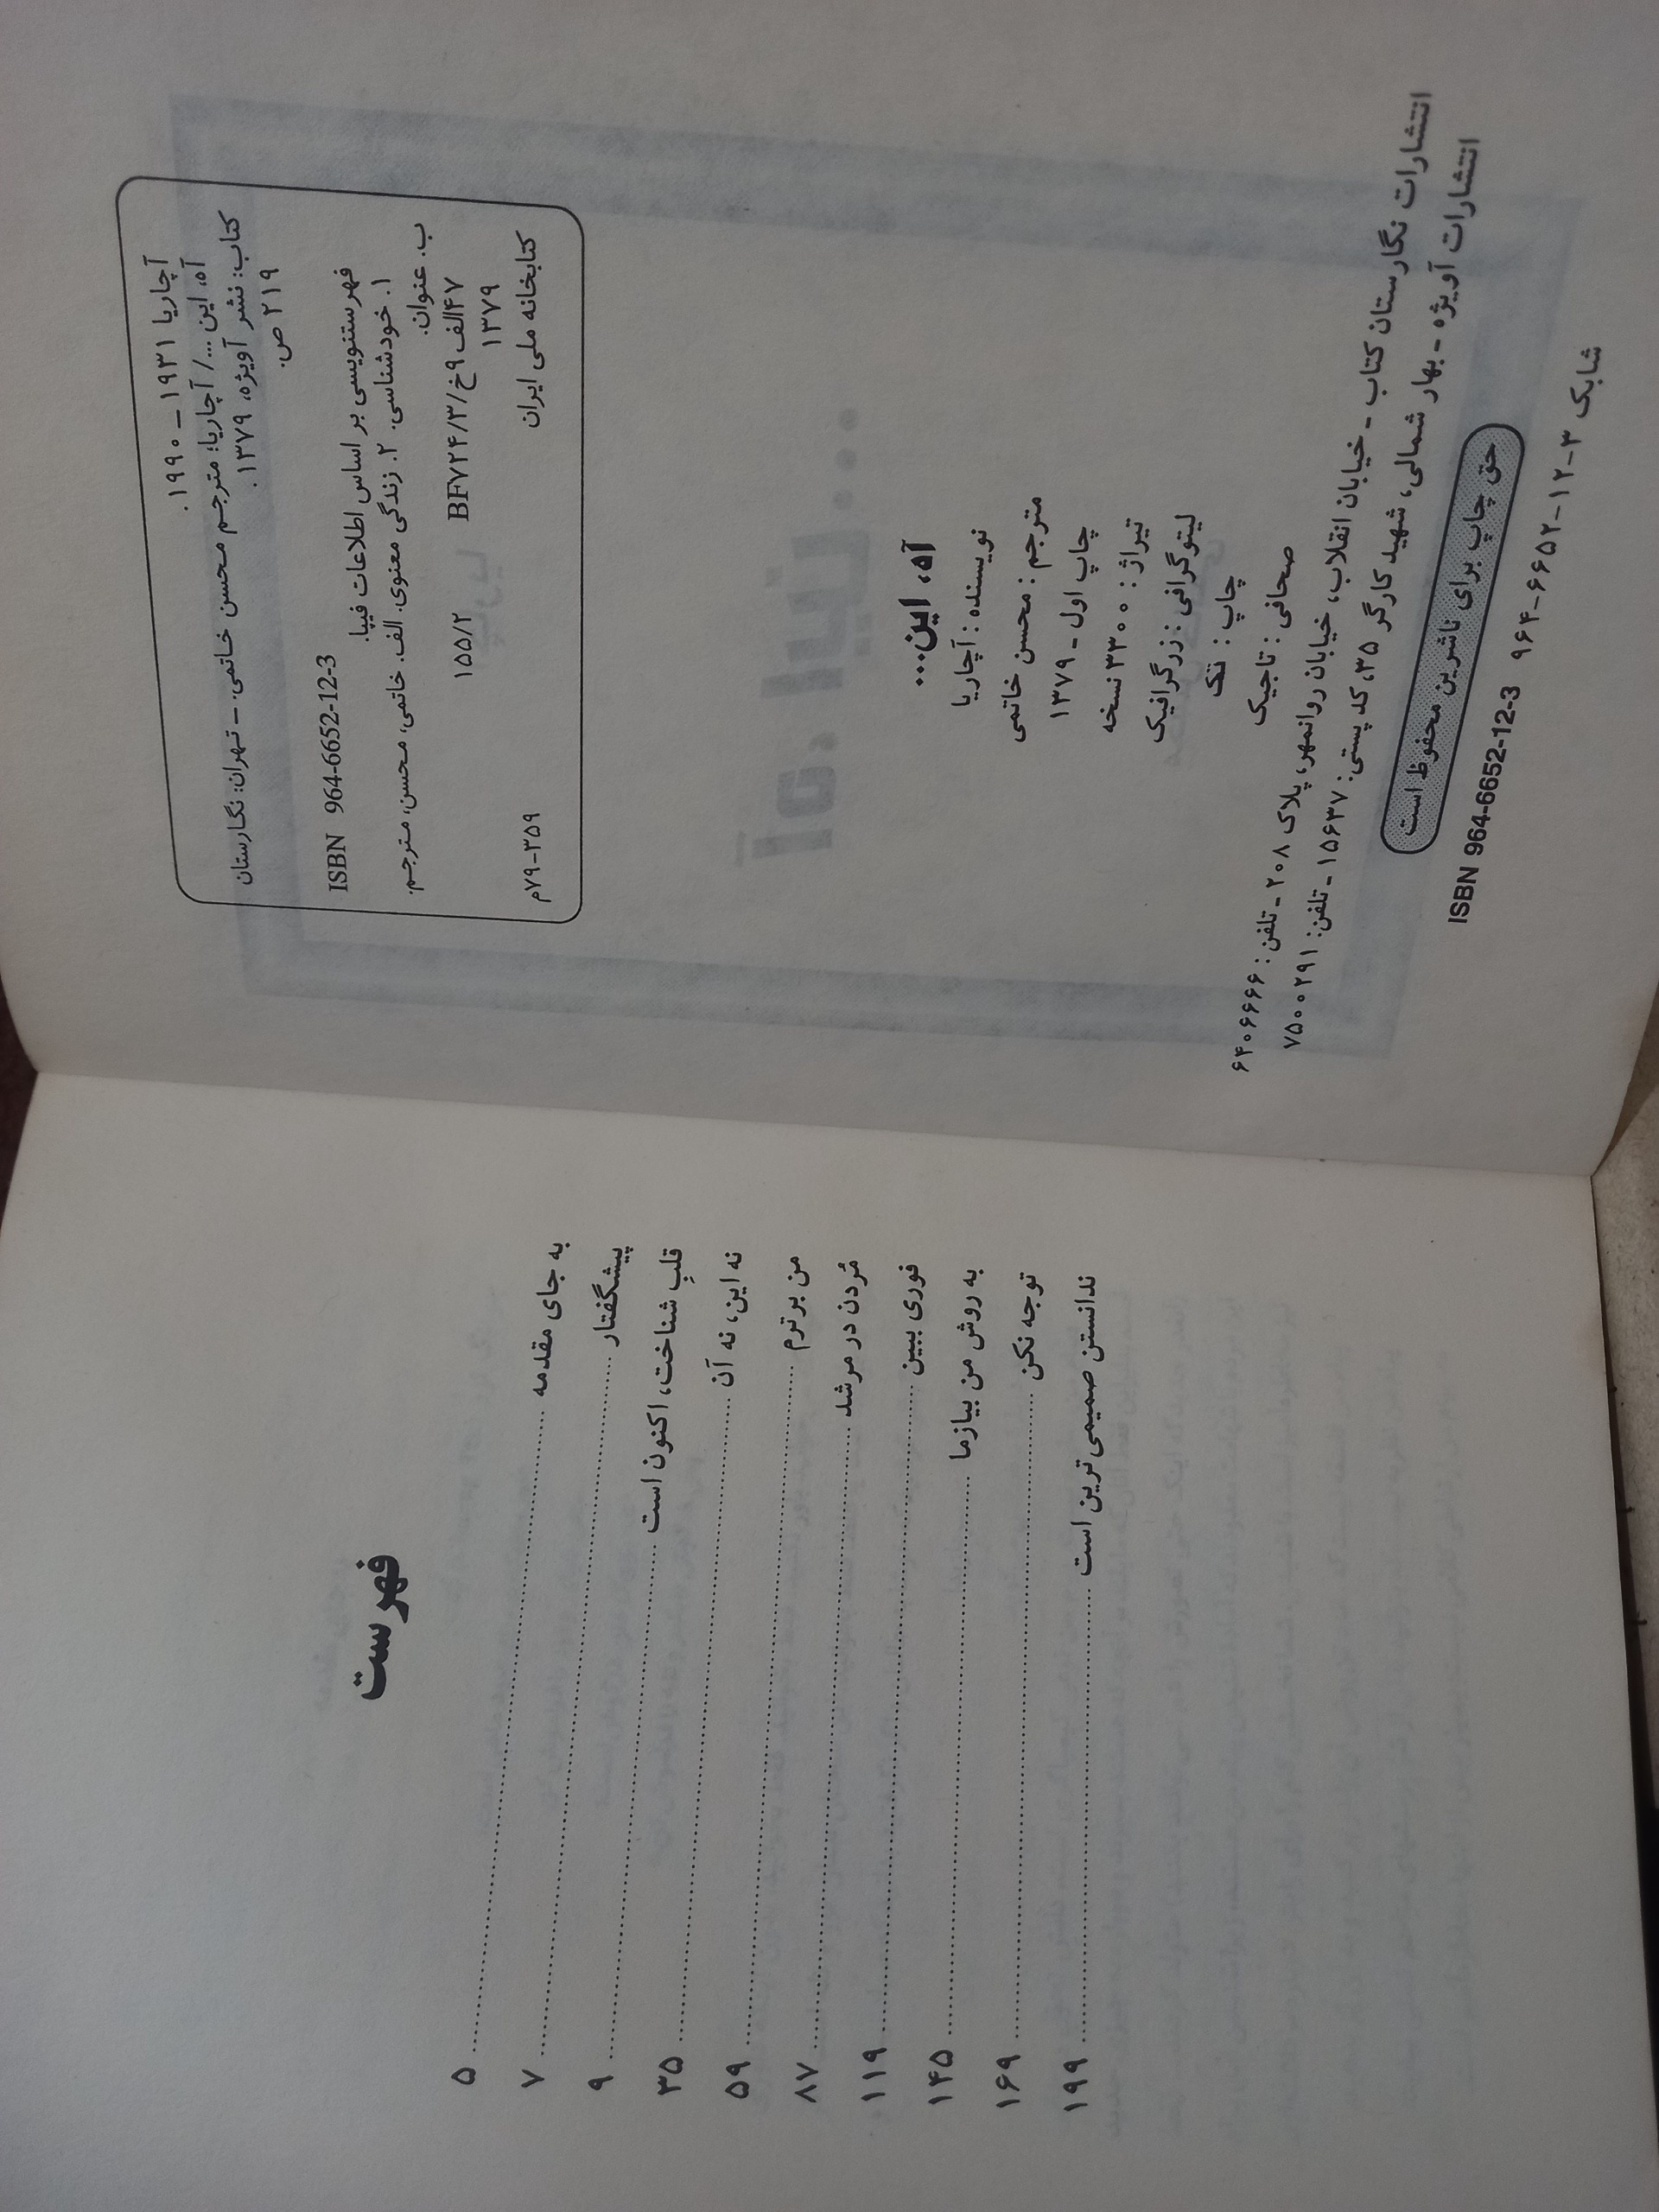 آچاریا ۱۹۳۱ – ۱۹۹۰.
آه، این .../ آچاریا؛ مترجم محسن خاتمی. – تهران: نگارستان
کتاب: نشر آویژه، ۱۳۷۹.
۲۱۹ ص.
ISBN 964-6652-12-3
فهرستنویسی بر اساس اطلاعات فیپا.
۱. خودشناسی. ۲. زندگی معنوی. الف. خاتمی، محسن، مترجم.
ب. عنوان.
۱۵۵/۲ BF۷۲۴/۳/خ۹الف۴۷
۱۳۷۹
کتابخانه ملی ایران
م۷۹-۳۵۹
آه، این...
نویسنده : آچاریا
مترجم : محسن خاتمی
چاپ اول - ۱۳۷۹
تیراژ : ۳۳۰۰ نسخه
لیتوگرافی : زرگرافیک
چاپ : تک
صحافی : تاجیک
انتشارات نگارستان کتاب - خیابان انقلاب، خیابان روانمهر، پلاک ۲۰۸ - تلفن : ۶۴۰۶۶۶۶
انتشارات آویژه - بهار شمالی، شهید کارگر ۳۵، کد پستی: ۱۵۶۳۷ - تلفن: ۷۵۰۰۲۹۱
حق چاپ برای ناشرین محفوظ است
شابک ۳-۱۲-۶۶۵۲-۹۶۴ ISBN 964-6652-12-3
فهرست
به جای مقدمه ..... ۵
پیشگفتار ..... ۷
قلبِ شناخت، اکنون است ..... ۹
نه این، نه آن ..... ۳۵
من برترم ..... ۵۹
مُردن در مرشد ..... ۸۷
فوری ببین ..... ۱۱۹
به روش من بیازما ..... ۱۴۵
توجه نکن ..... ۱۶۹
ندانستن صمیمی ترین است ..... ۱۹۹